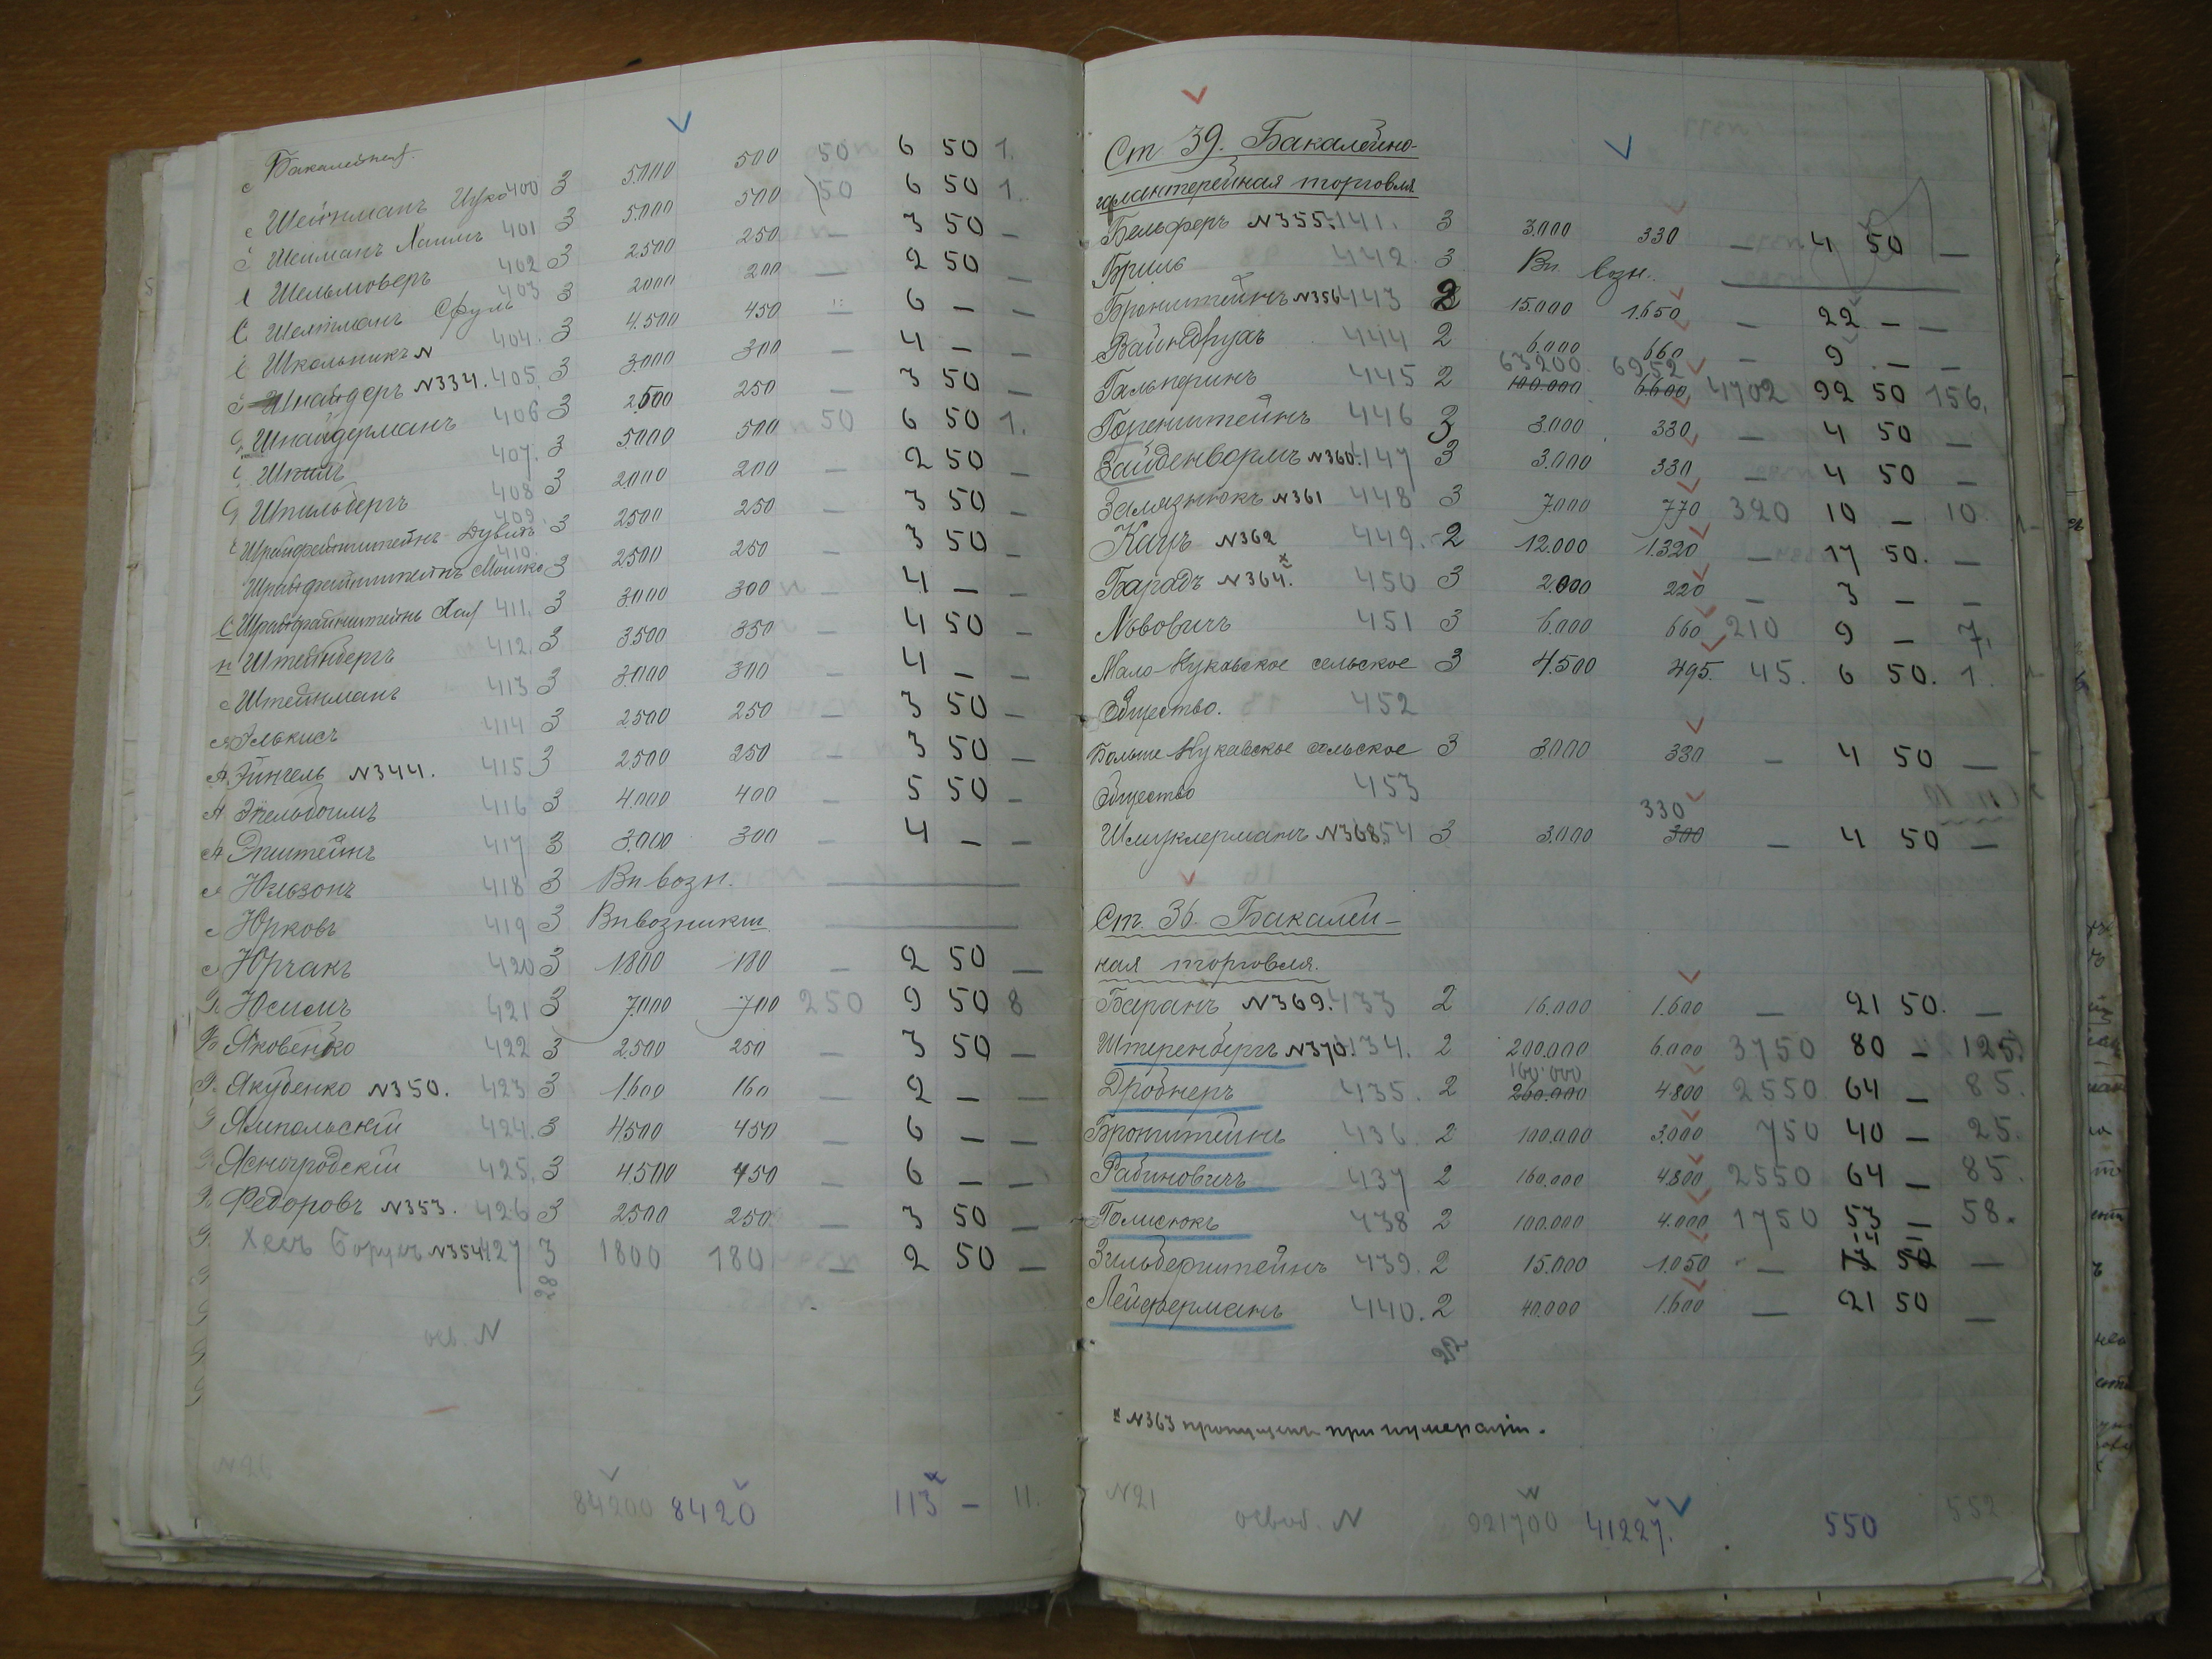 Бакалейная.
Шейнманъ Ицко 400 3 5.000 500 50 6 50 1.
Шейманъ Хаимъ 401 3 5.000 500 50 6 50 1
Шельмоверъ 402 3 2500 250 — 3 50 —
Шехтманъ Сруль 403 3 2000 200 — 2 50 —
Школьникъ N 404. 3 4.500 450 — 6 — —
Шнайдеръ N334. 405 3 3.000 300 — 4 — —
Шнайдерманъ 406 3 2500 250 — 3 50 —
407. 3 5000 500 50 6 50 1.
Шпильбергъ 408 3 2000 200 — 2 50 —
Дувидъ 409 3 2500 250 — 3 50 —
Мошко 410. 3 2500 250 — 3 50 —
Хая 411. 3 3.000 300 — 4 — —
Штейнбергъ 412. 3 3500 350 — 4 50 —
Штейнманъ 413 3 3.000 300 — 4 — —
Элькисъ 414 3 2500 250 — 3 50 —
Эйнгель N344. 415 3 2500 250 — 3 50 —
Эпельбоимъ 416 3 4.000 400 — 5 50 —
Эпштейнъ 417 3 3.000 300 — 4 — —
Юльзонъ 418 3 Вп возн.
Юрковъ 419 3 Вп возникш
Юрчакъ 420 3 1800 180 — 2 50 —
Юсимъ 421 3 7.000 700 250 9 50 8
Яковенко 422 3 2.500 250 — 3 50 —
Якубенко N350. 423 3 1.600 160 — 2 — —
Ямпольскій 424. 3 4500 450 — 6 — —
Ясногродскій 425. 3 4.500 450 — 6 — —
Федоровъ N353. 426 3 2500 250 — 3 50 —
Хесъ Борухъ N354 427 3 1800 180 — 2 50 —
28
осв. N
N26
84200 8420 113 — 11.
Ст 39. Бакалейно-
галантерейная торговля
Бельферъ N355. 441. 3 3.000 330 — 4 50 —
Бриль 442. 3 Вп. возн.
Бронштейнъ N356 443 2 15.000 1.650 — 22 — —
444 2 6.000 660 — 9 — —
63200. 6952
Гальперинъ 445 2 100.000 6600 4702 92 50 156.
Горенштейнъ 446 3 3.000 330 — 4 50 —
Зайденвормъ N360. 447 3 3.000 330 — 4 50 —
Замязнюкъ N361 448 3 7000 770 320 10 — 10
Кацъ N362 449. 2 12.000 1.320 — 17 50. —
Барадъ N364.× 450 3 2.000 220 — 3 — —
451 3 6.000 660 210 9 — 7.
Мало-Кукавское сельское 3 4.500 495. 45. 6 50. 1.
Общество. 452
Больше Кукавское сельское 3 3.000 330 — 4 50 —
Общество 453
330
Шмуклерманъ N368 54 3 3.000 300 — 4 50 —
Ст. 36. Бакалей-
ная торговля.
Баранъ N369. 433 2 16.000 1.600 — 21 50. —
Штеренбергъ N370. 434. 2 200.000 6.000 3750 80 — 125.
160.000
Дробнеръ 435. 2 260.000 4.800 2550 64 — 85.
Бронштейнъ 436. 2 100.000 3.000 750 40 — 25.
Рабиновичъ 437 2 160.000 4.800 2550 64 — 85.
438 2 100.000 4.000 1750 53 — 58.
Зильберштейнъ 439. 2 15.000 1.050 — —
Лейферманъ 440. 2 40.000 1.600 — 21 50 —
× N363 пропущенъ при нумераціи.
N21
освоб. N 921700 41227. 550 552